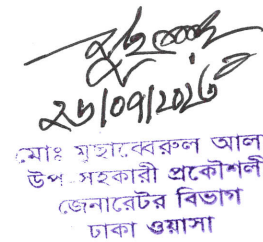 ২৬/০৭/২০২৩
মোঃ মুহাব্বেরুল আল
উপ-সহকারী প্রকৌশলী
জেনারেটর বিভাগ
ঢাকা ওয়াসা